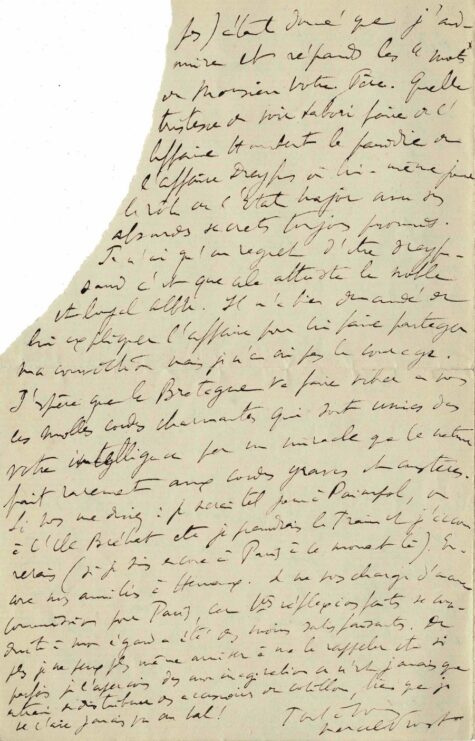 pas) c'était donné que j'ad-
mire et répands les "mots"
de Monsieur Votre Père. Quelle
tristesse de voir Labori faire de l'
affaire Humbert la parodie de
l'affaire Dreyfus où lui-même joue
le rôle de l'État major avec des
absurdes secrets toujours promis.
Je n'ai qu'un regret d'être dreyfu-
sard c'est que cela attriste le noble
et loyal Albu. Il m'a bien demandé de
lui expliquer l'affaire pour lui faire partager
ma conviction mais je n'ai pas le courage.
J'espère que la Bretagne va faire vibrer en vous
ces molles cordes charmantes qui sont unies dans
votre intelligence par un miracle que la nature
fait rarement aux cordes graves et austères.
Si vous me disiez : je serai tel jour à Paimpol, ou
à l'île Bréhat etc je prendrais le train et j'accour-
rerais (si je suis encore à Paris à ce moment là). En-
core mes amitiés à . Je ne vous charge d'aucune
commission pour Paris, car les réflexions faites
à mon égard a été des moins satisfaisantes. De
pas je ne peux pas même arriver à me le rappeler et si
parfois je l'aperçois dans mon imagination ce n'est jamais que
distribuer des accessoires de cotillon, bien que je
ne l'aie jamais vu au bal !
Tout à vous
Marcel Proust